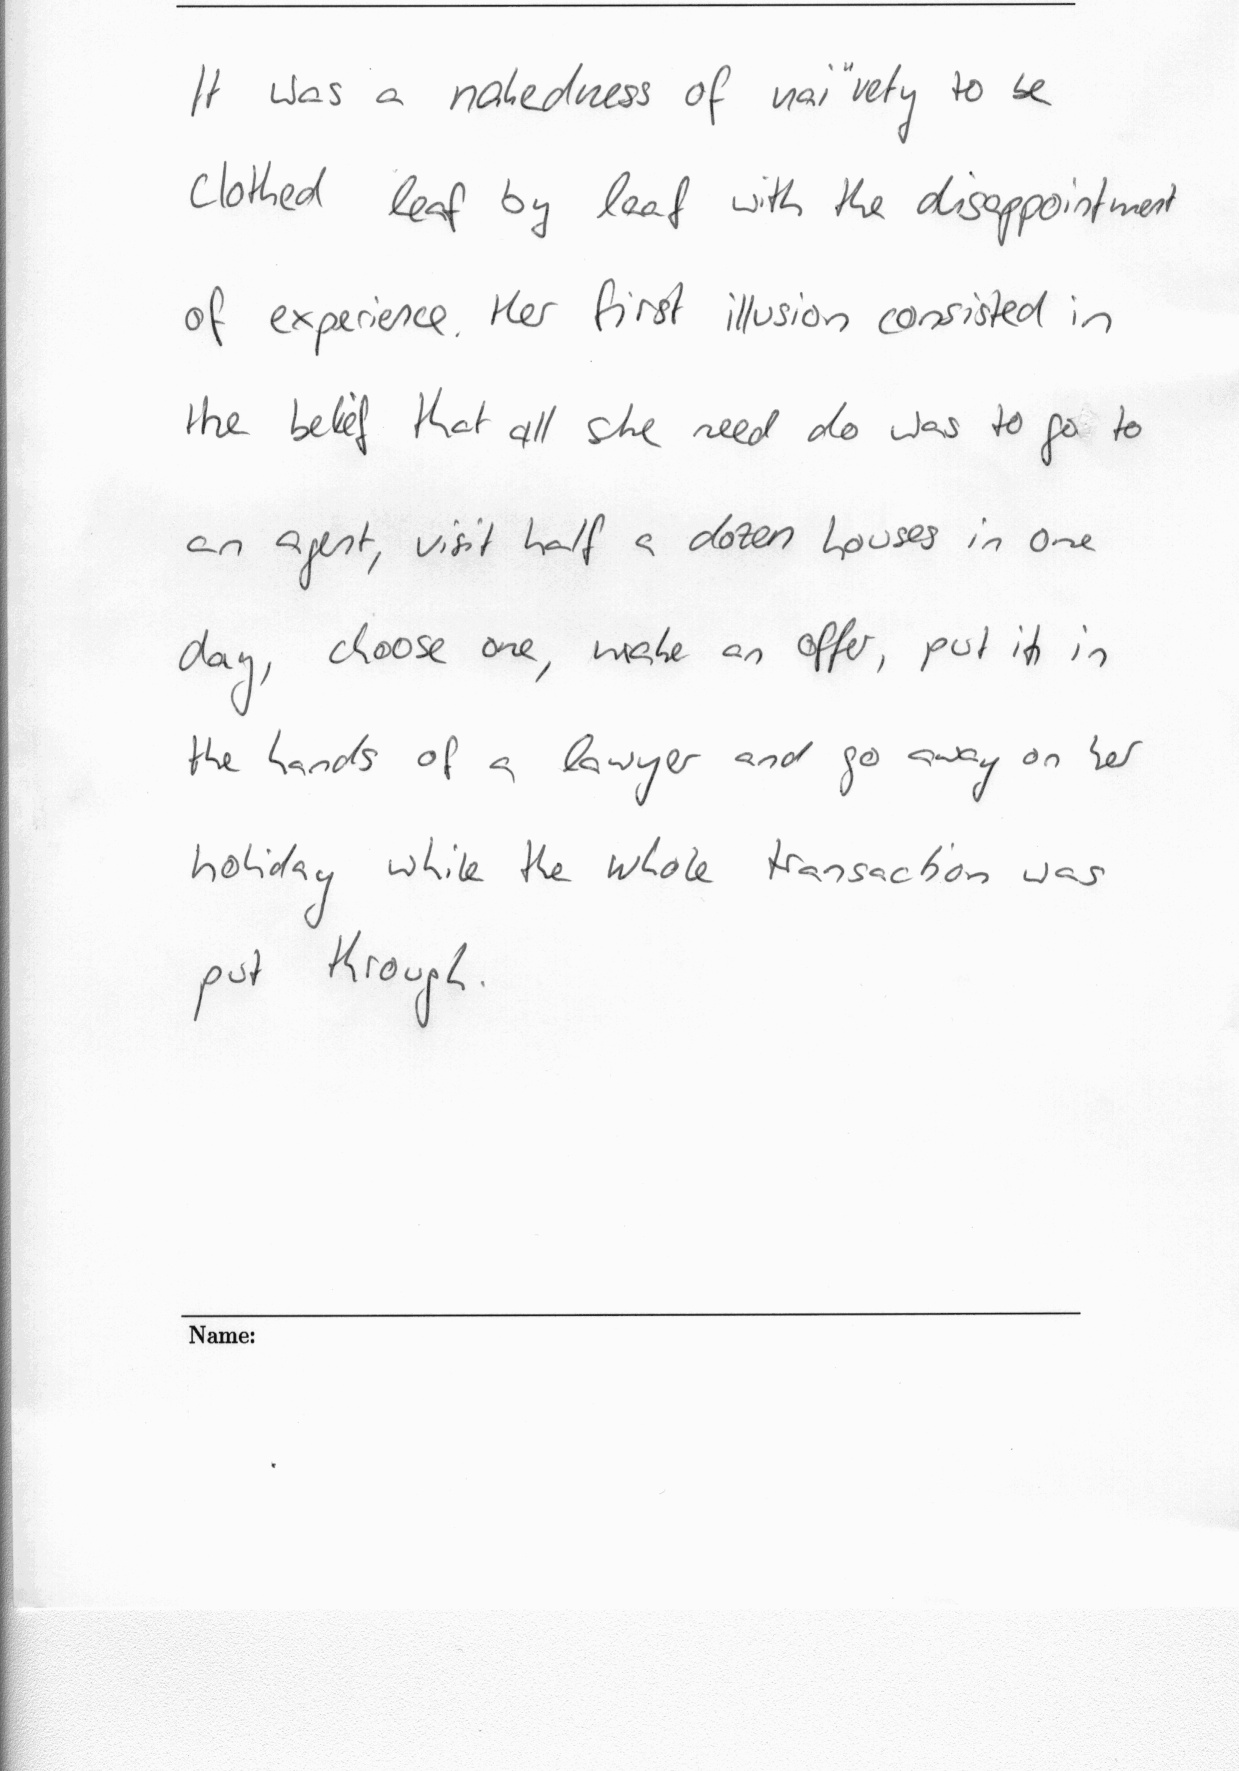 It was a nakedness of nai"vety to be
clothed leaf by leaf with the disappointment
of experience. Her first illusion consisted in
the belief that all she need do was to go to
an agent, visit half a dozen houses in one
day, choose one, make an offer, put it in
the hands of a lawyer and go away on her
holiday while the whole transaction was
put through.
Name: